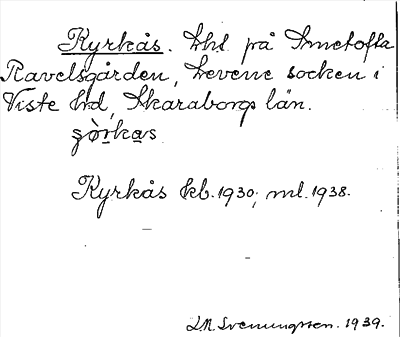 Kyrkås. Lht. på Smetofta
Ravelsgården, Levene socken i
Viste hd, Skaraborgs län.
çò̱rkas
Kyrkås kb. 1930; ml. 1938.
L.N. Svenungsson. 1939.